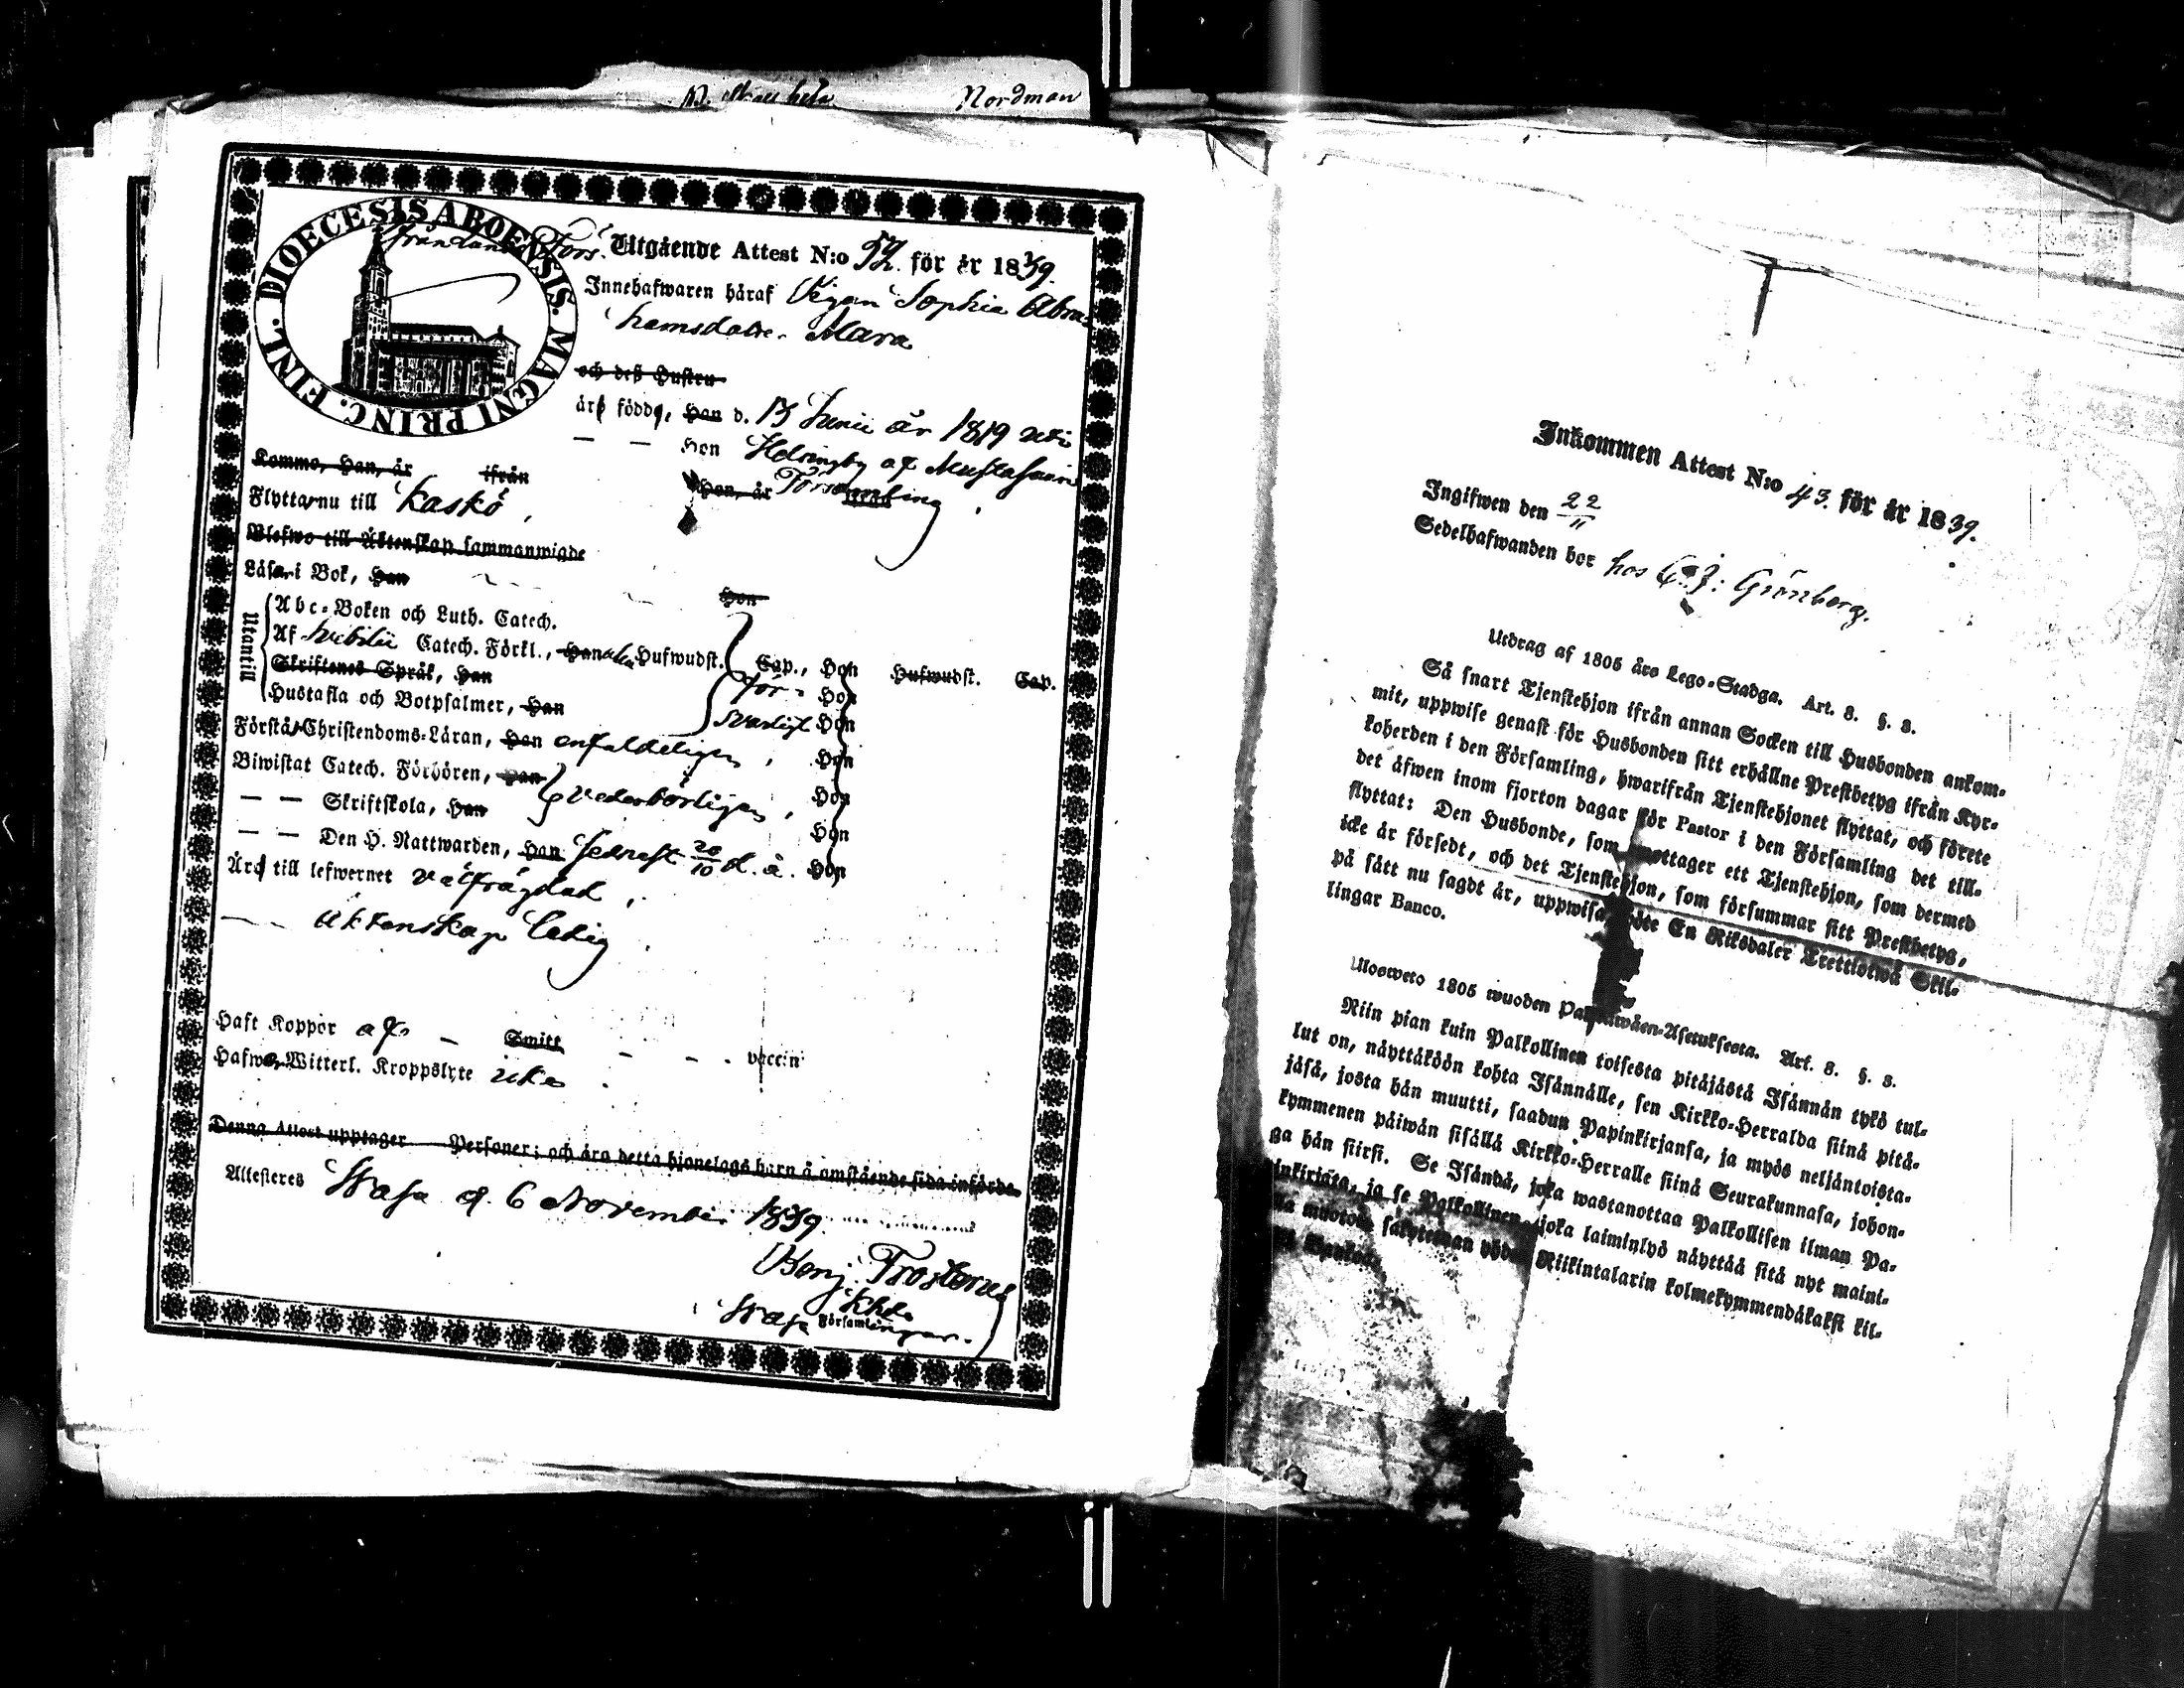 Nordman
DIOECESIS ABOENSIS. MAGNI PRINC. FINL.
från Lands Förs. Utgående Attest N:o 52. för år 1839.
Innehafwaren häraf Pigan Sophia Abra-
hamsdotter Alara
och deß Hustru
äro födde, Han d. 13 Junii år 1819 uti
— — Hon Helsingby af Mustasaari
Församling.
Kommo, Han, år ifrån Hon, år ifrån
Flytta nu till Kaskö,
Blefwo till Äktenskap sammanwigde
Läsa i Bok, Han Hon
Utantill
Abc-Boken och Luth. Catech.
Af Svebilii Catech. Förkl., Han alla Hufwudst. Cap., Hon Hufwudst. Cap.
Skriftenes Språk, Han för- Hon
Hustafla och Botpsalmer, Han svarligt Hon
Förstå Christendoms-Läran, Han enfaldeligen, Hon
Biwistat Catech. Förhören, Han vederbörligen, Hon
— — Skriftskola, Han Hon
— — Den H. Nattwarden, Han sednast 20/10 d. å. Hon
Äro till lefwernet välfrägdad,
— Äktenskap ledig.
Haft Koppor af — Smitt — - - vaccin
Hafwa Witterl. Kroppslyte icke.
Denna Attest upptager Personer; och äro detta hjonelags barn å omstående sida införda.
Attesteres Wasa d. 6 November 1839.
Benj. Frosterus
Khde
Wasa Församlingar.
Inkommen Attest N:o 43. för år 1839.
Ingifwen den 22/11
Sedelhafwanden bor hos C. J: Grönberg.
Utdrag af 1805 års Lego-Stadga. Art. 3. §. 3.
Så snart Tjenstehjon ifrån annan Socken till Husbonden ankom-
mit, uppwise genast för Husbonden sitt erhållne Prestbetyg ifrån Kyr-
koherden i den Församling, hwarifrån Tjenstehjonet flyttat, och förete
det äfwen inom fjorton dagar för Pastor i den Församling det till-
flyttat: Den Husbonde, som emottager ett Tjenstehjon, som dermed
icke är försedt, och det Tjenstehjon, som försummar sitt Prestbetyg,
på sätt nu sagdt är, uppwisa, böte En Riksdaler Trettiotwå Skil-
lingar Banco.
Ulosweto 1805 wuoden Palkkawäen-Asetuksesta. Art. 3. §. 3.
Niin pian kuin Palkollinen toisesta pitäjästä Isännän tykö tul-
lut on, näyttäköön kohta Isännälle, sen Kirkko-Herralda siinä pitä-
jäsä, josta hän muutti, saadun Papinkirjansa, ja myös neljäntoista-
kymmenen päiwän sisällä Kirkko-Herralle siinä Seurakunnasa, johon-
ga hän siirsi. Se Isändä, joka wastanottaa Palkollisen ilman Pa-
inkirjata, ja se Palkollinen, joka laiminlyö näyttää sitä nyt maini-
muotoa, sakotetaan yhden Riikintalarin kolmekymmendäkaksi kil-